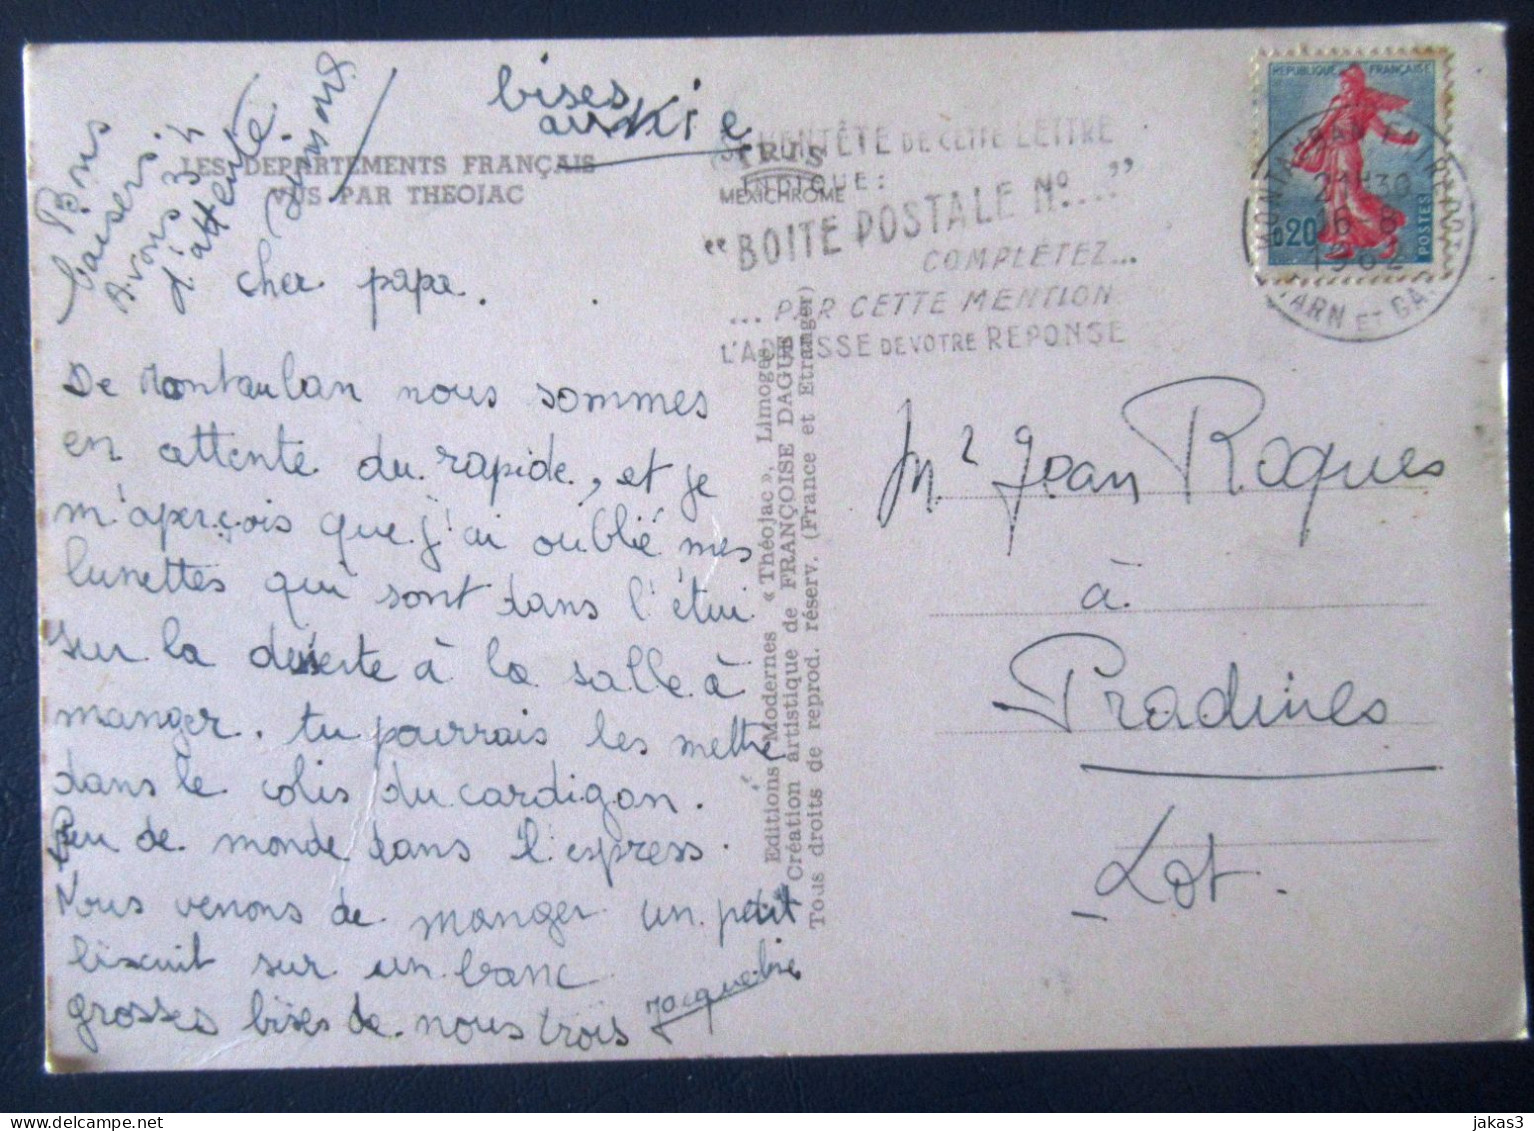 Bons
baisers
Avons 3 h
d'attente.
bises
LES DEPARTEMENTS FRANÇAIS
VUS PAR THEOJAC
MEXICHROME
cher papa.
De Montauban nous sommes
en attente du rapide, et je
m'aperçois que j'ai oublié mes
lunettes qui sont dans l'étui
sur la desserte à la salle à
manger. tu pourrais les mettre
dans le colis du cardigan.
Peu de monde dans l'express.
Nous venons de manger un petit
biscuit sur un banc
grosses bises de nous trois
Editions Modernes « Théojac », Limoges
Création artistique de FRANÇOISE DAGUE
Tous droits de reprod. réserv. (France et Etranger)
SI L'ENTÊTE DE CETTE LETTRE
INDIQUE:
“BOITE POSTALE Nº....”
COMPLETEZ...
...PAR CETTE MENTION
L'ADRESSE DE VOTRE REPONSE
REPUBLIQUE FRANÇAISE
0,20
POSTES
21H30
16-8
1962
TARN ET GAR.
Mr Jean Roques
à
Pradines
Lot.
jakas3